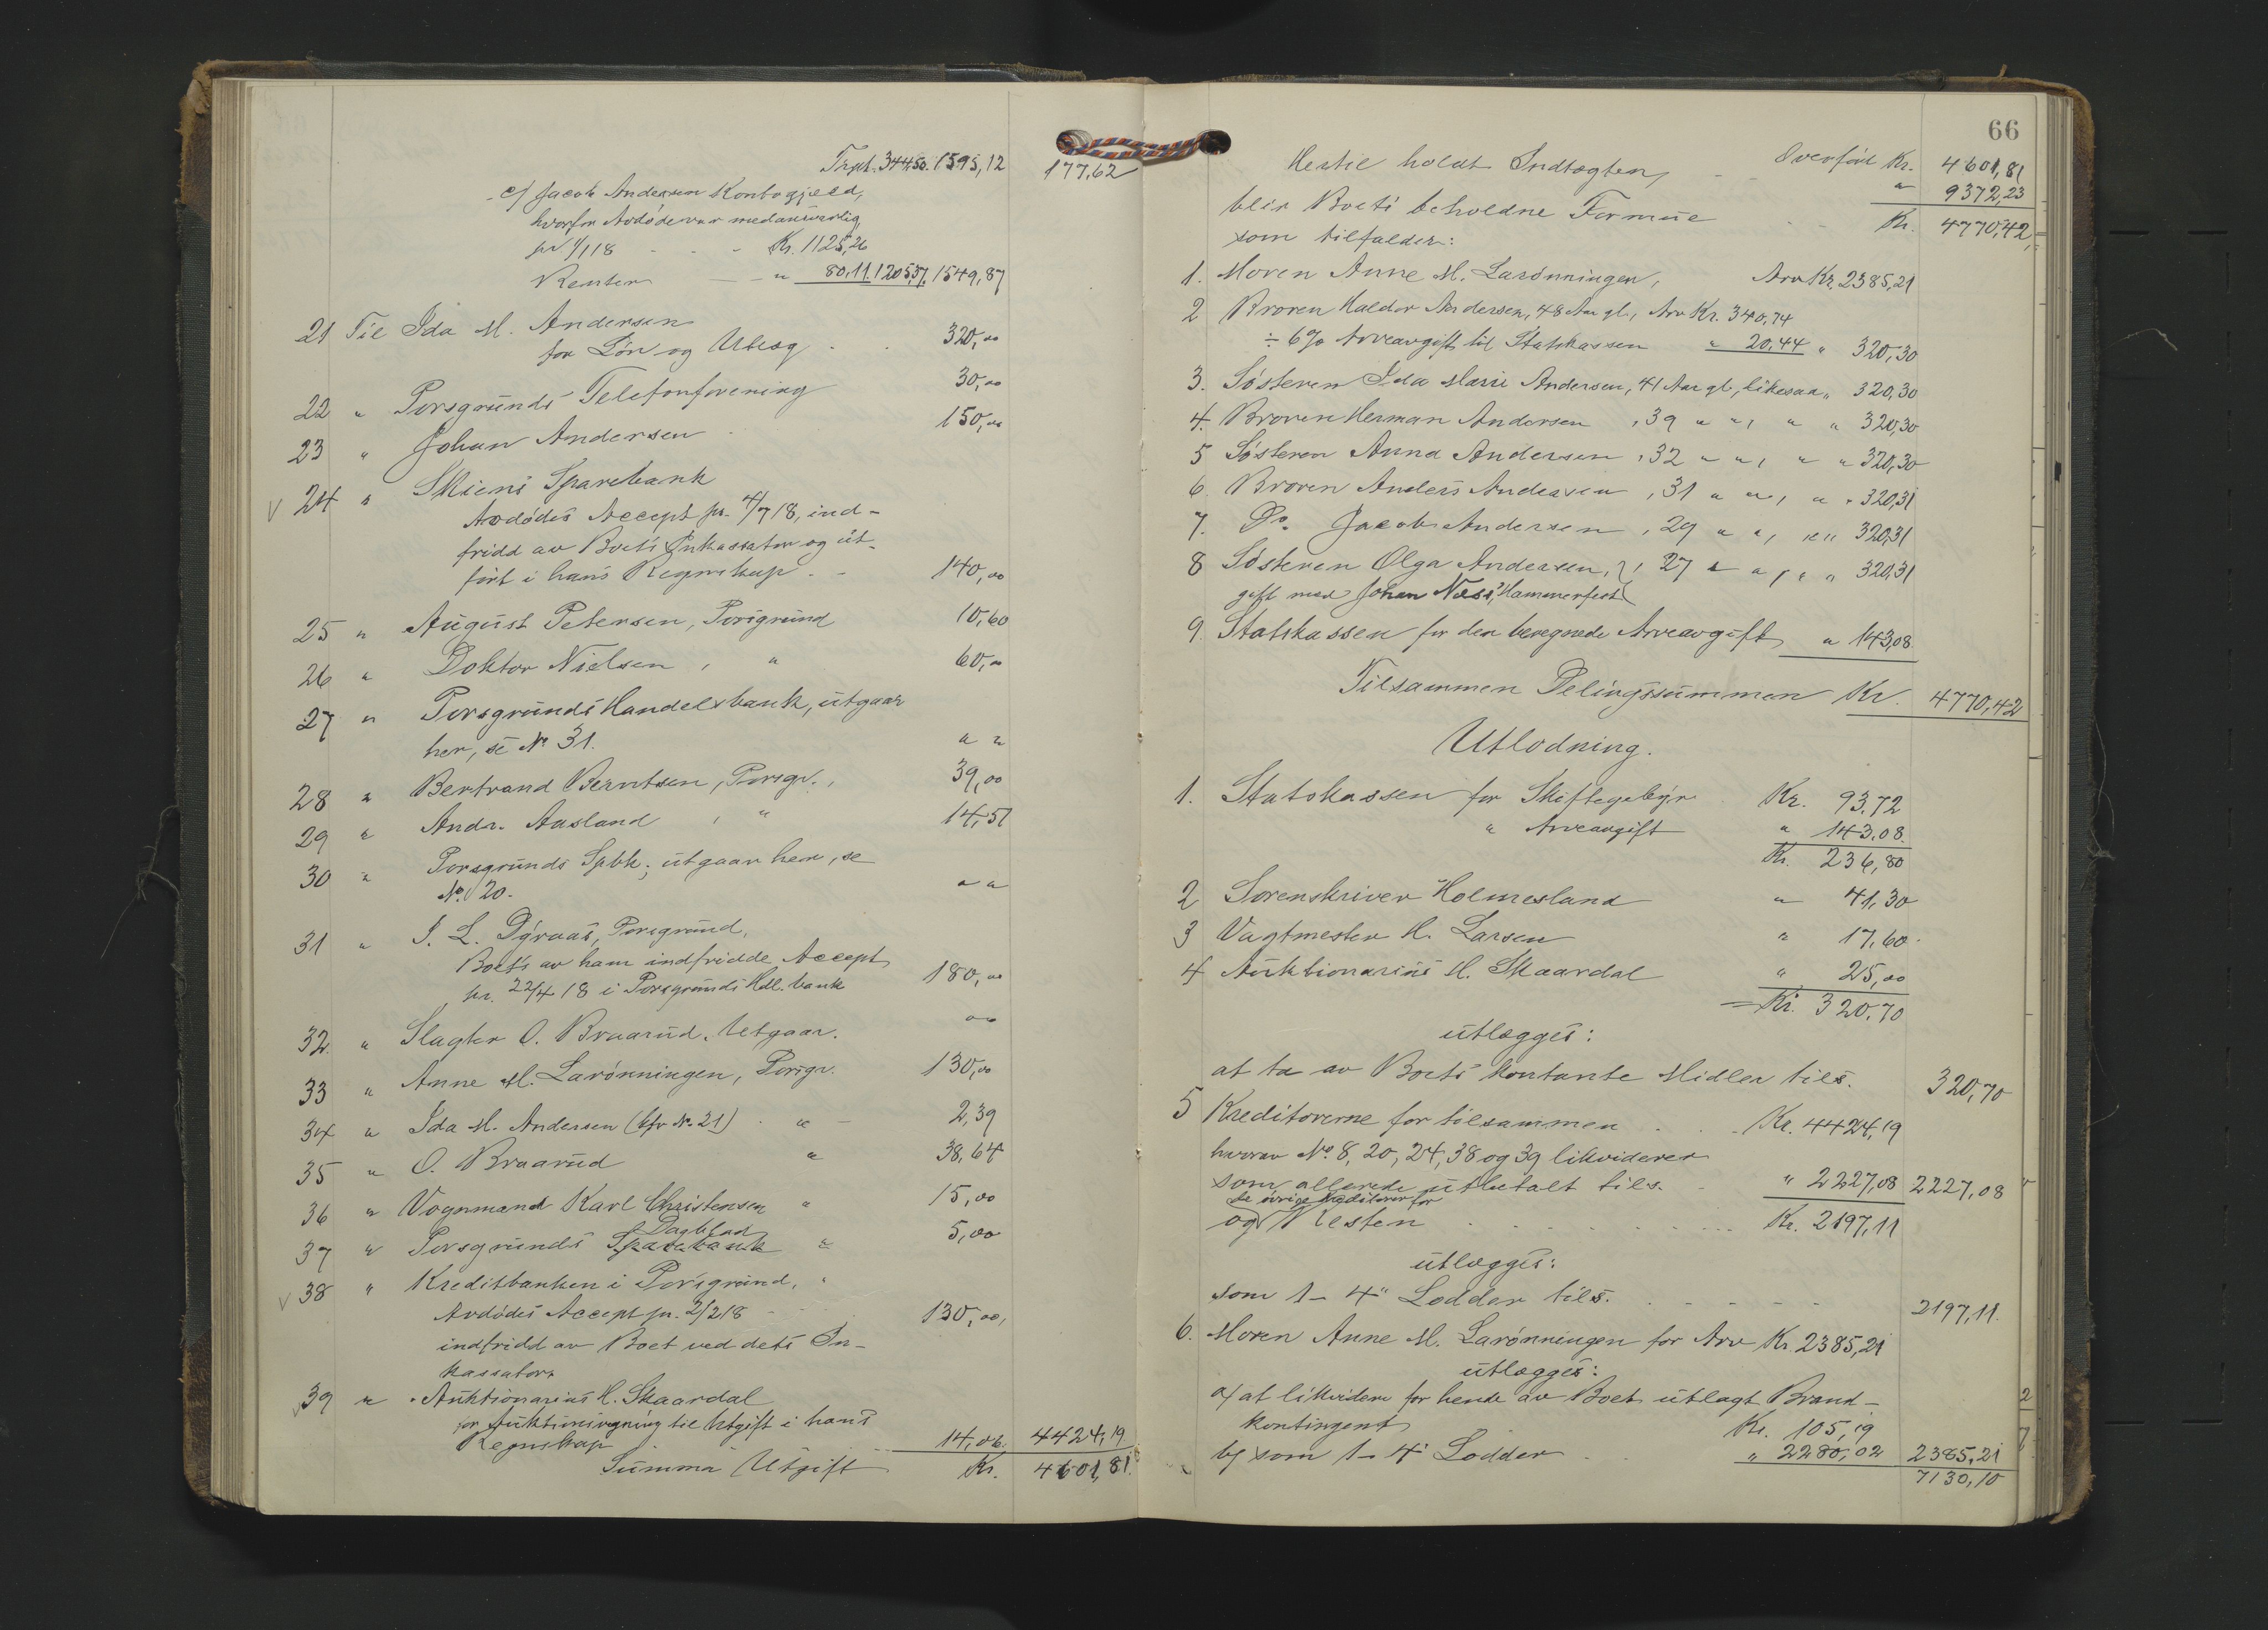 Trpt. 344,50. 1595,12 177,62
c/ Jacob Andersen Kontogjæld,
hvorfor Avdøde var medansvarlig
pr 1/1 18 - - - Kr. 1125,26
Renter - - " 80,11. 1205,37. 1549,87
21 Til Ida M. Andersen
for Løn og Utlæg . . 320,00
22 " Porsgrunds Telefonforening 30,00
23 " Johan Andersen 150,00
V 24 " Skiens Sparebank
Avdødes Accept pr. 4/7 18, ind-
fridd av Boets Inkassator og ut-
ført i hans Regnskap . - 140,00
25 " August Petersen, Porsgrund 10,60
26 " Doktor Nielsen , " 60,00
27 " Porsgrunds Handelsbank, utgaar
her, se No 31. " "
28 " Bertrand Berntsen, Porsgr., 39,00
29 " Andr. Aasland , " 14,51
30 " Porsgrunds Spbk; utgaar her, se
No. 20. " "
31 " I. L. Dyraas, Porsgrund,
Boets av ham indfridde Accept
pr. 22/4 18 i Porsgrunds Hdl.bank 180,00
32. " Slagter O. Braarud. Utgaar. " "
33 " Anne M. Larønningen, Porsgr. 130,00
34 " Ida M. Andersen (cfr No. 21) . " - 2,39
35 " O. Braarud " 38,64
36 " Vognmand Karl Christensen " 15,00
Dagblad
37 " Porsgrunds Sparebank " 5,00
V 38 " Kreditbanken i Porsgrund, "
Avdødes Accept pr. 2/2 18 - 130,00,
indfridd av Boet ved dets In-
kassator
V 39 " Auktionarius H. Skaardal
for Auktionsregning til Utgift i hans
Regnskap . . 14,06. 4424,19
Summa Utgift Kr. 4601,81.
66
Overført Kr. 4601,81
Hertil holdt Indtægten, - - " 9372,23
blir Boets beholdne Formue - - Kr. 4770,42,
som tilfalder:
1. Moren Anne M. Larønningen, Arv Kr. 2385,21
2 Broren Haldor Andersen, 48 Aar gl, Arv Kr. 340,74
÷ 6% Arveavgift til Statskassen " 20,44 " 320,30
3. Søsteren Ida Marie Andersen, 41 Aar gl, likesaa " 320,30
4. Broren Herman Andersen , 39 " ", " " 320,30
5 Søsteren Anna Andersen , 32 " ", " " 320,30
6. Broren Anders Andersen , 31 " ", " " 320,31
7. Do. Jacob Andersen , 29 " ", " " 320,31
8 Søsteren Olga Andersen, } 27 " ", " " 320,31
gift med Johan Næss, Hammerfest
9. Statskassen for den beregnede Arveavgift " 143,08.
Tilsammen Delingssummen Kr. 4770,42
Utlodning.
1. Statskassen for Skiftegebyr Kr. 93,72
" Arveavgift " 143,08.
Kr. 236,80
2 Sorenskriver Holmesland " 41,30
3 Vagtmester H. Larsen " 17,60.
4 Auktionarius H. Skaardal " 25,00
= Kr. 320,70
utlægges:
at ta av Boets kontante Midler tils. 320,70
5 Kreditorerne for tilsammen . . Kr. 4424,19
hvorav No. 8, 20, 24, 38 og 39 likviderer
som allerede utbetalt tils. - " 2227,08 2227,08
de øvrige Kreditorer for
og Resten . . . . . . . . . Kr. 2197,11
utlægges:
som 1 - 4" Lodder tils. . - - - - 2197,11.
6. Moren Anne M. Larønningen for Arv Kr. 2385,21
utlægges:
a/ at likvidere for hende av Boet utlagt Brand-
kontingent Kr. 105,19
b/ som 1 - 4" Lodder . . " 2280,02 2385,21
7130,10